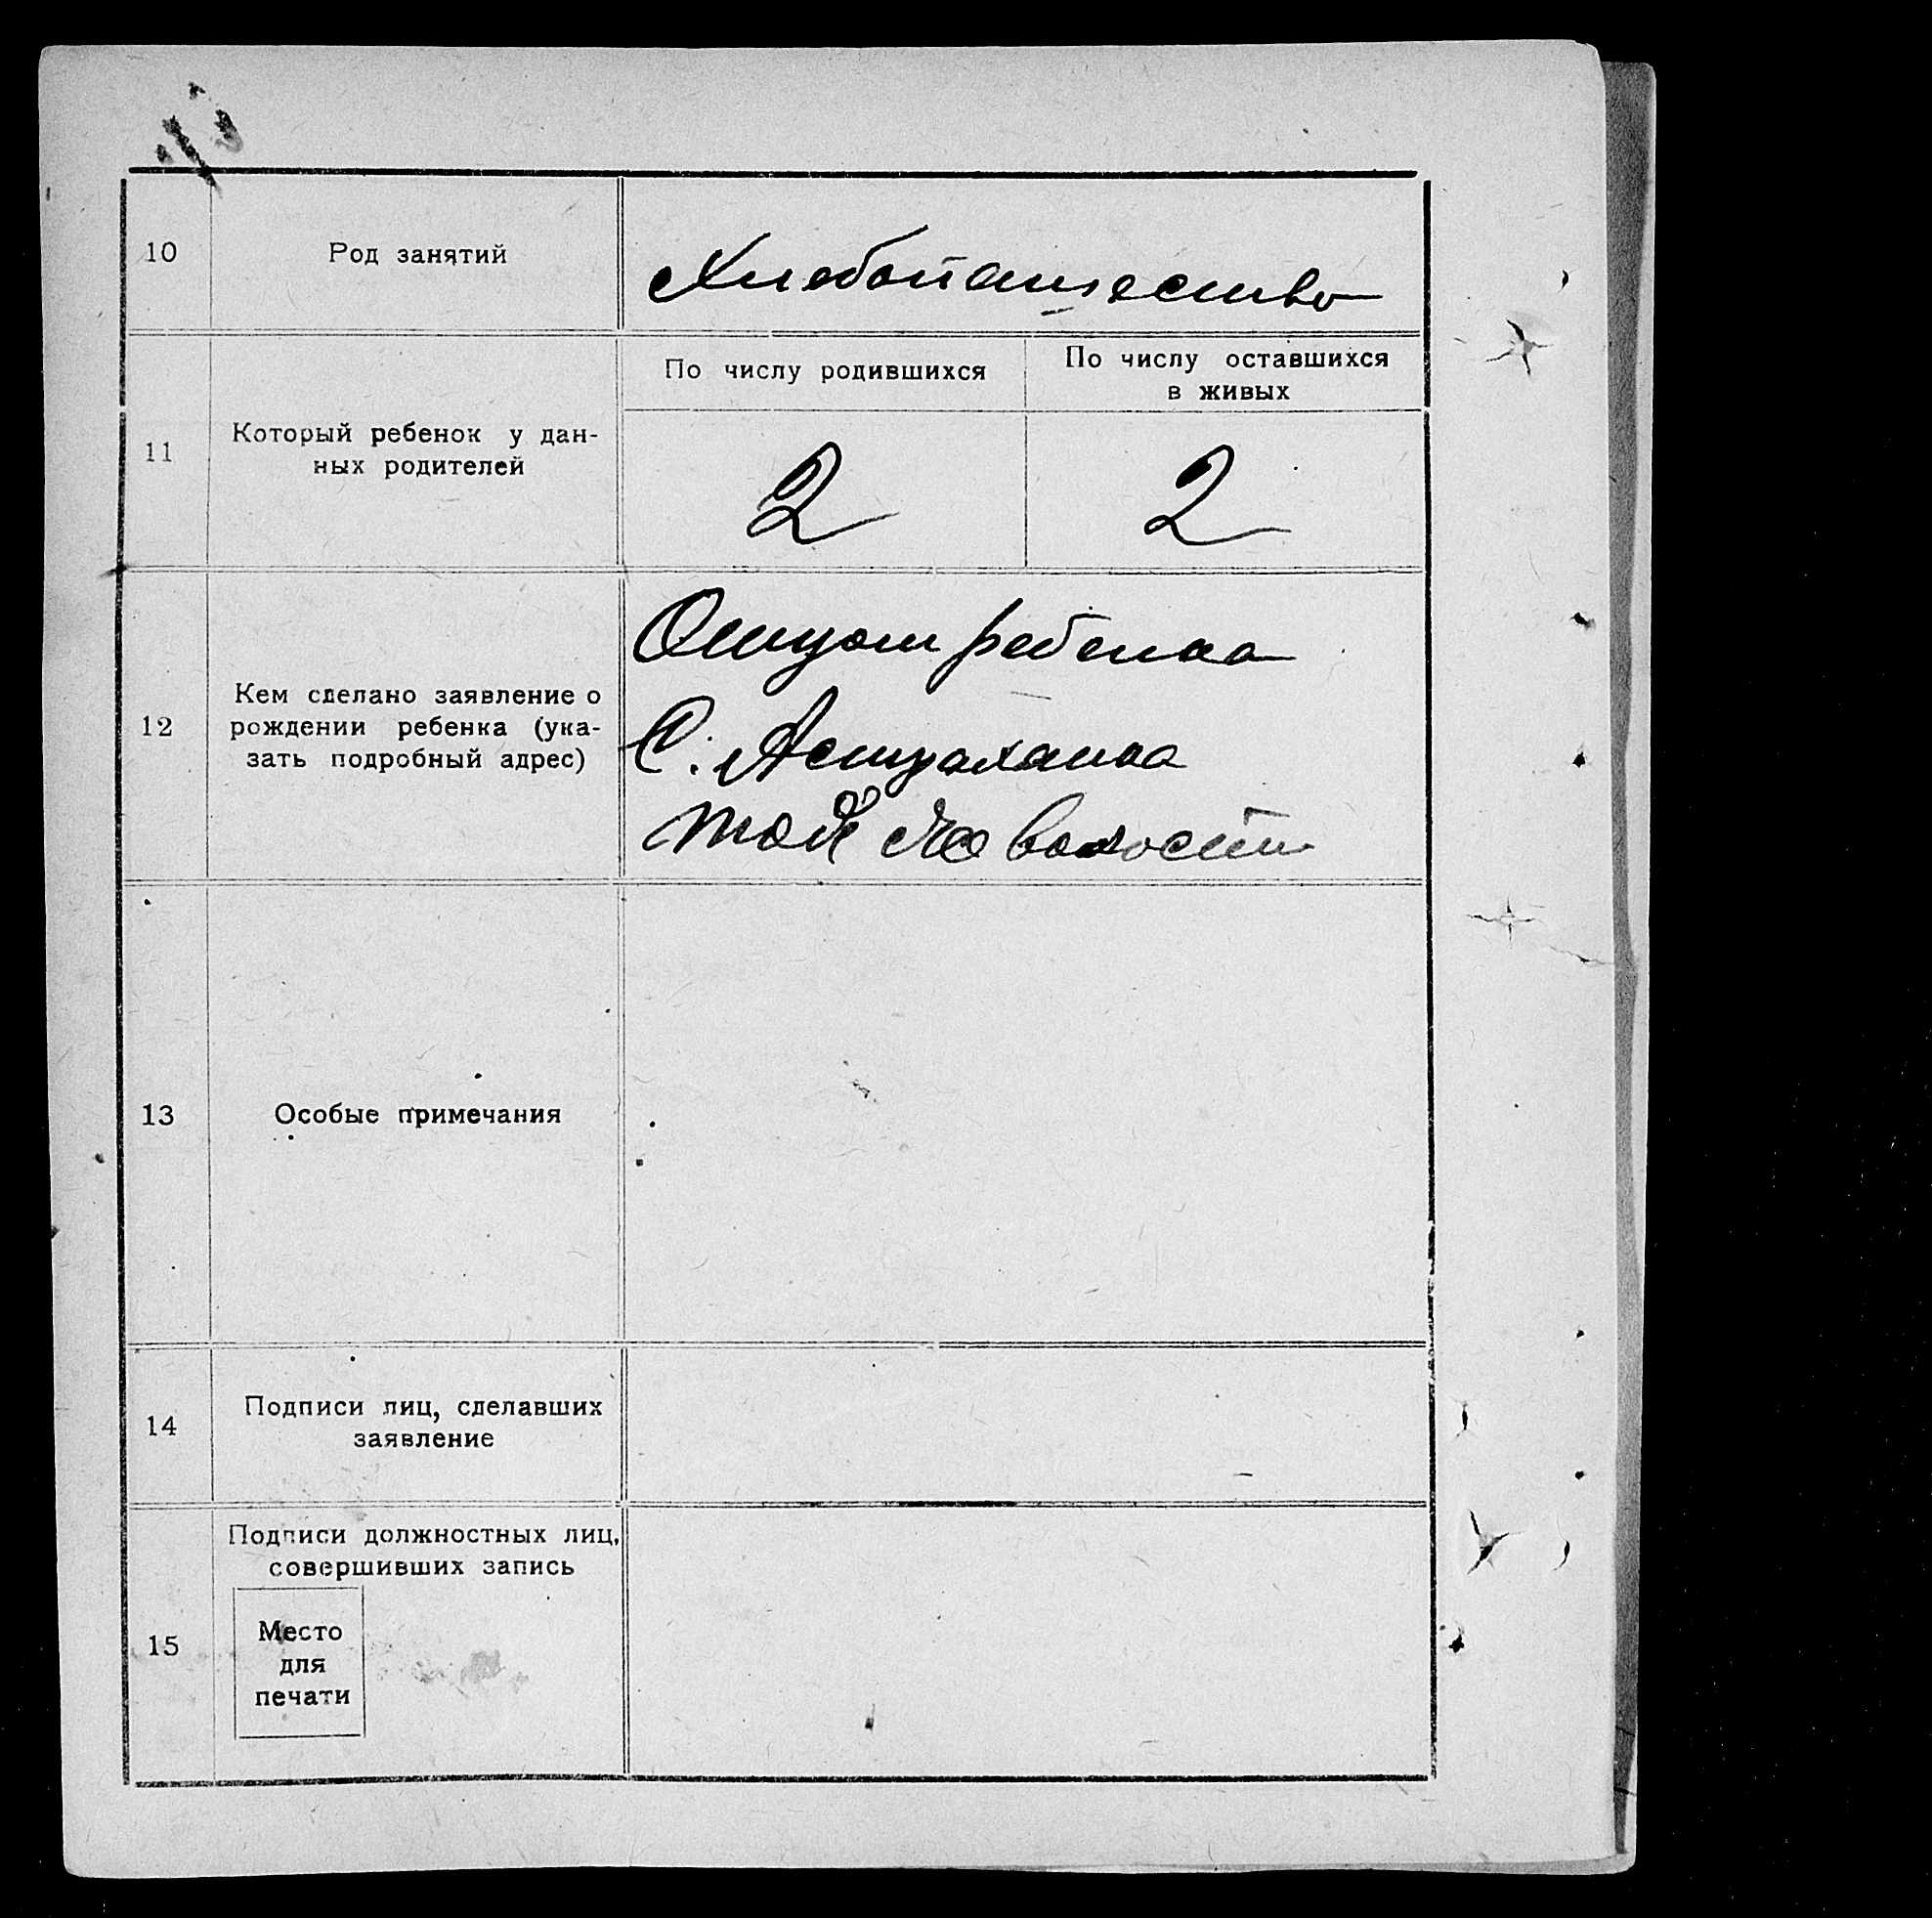 10
Род занятий
Хлебопашество
11
Который ребенок у дан-
ных родителей
По числу родившихся
По числу оставшихся
в живых
2
2
12
Кем сделано заявление о
рождении ребенка (ука-
зать подробный адрес)
Отцом ребенка
С. Астраханка
той же волости
13
Особые примечания
14
Подписи лиц, сделавших
заявление
15
Подписи должностных лиц,
совершивших запись
Место
для
печати